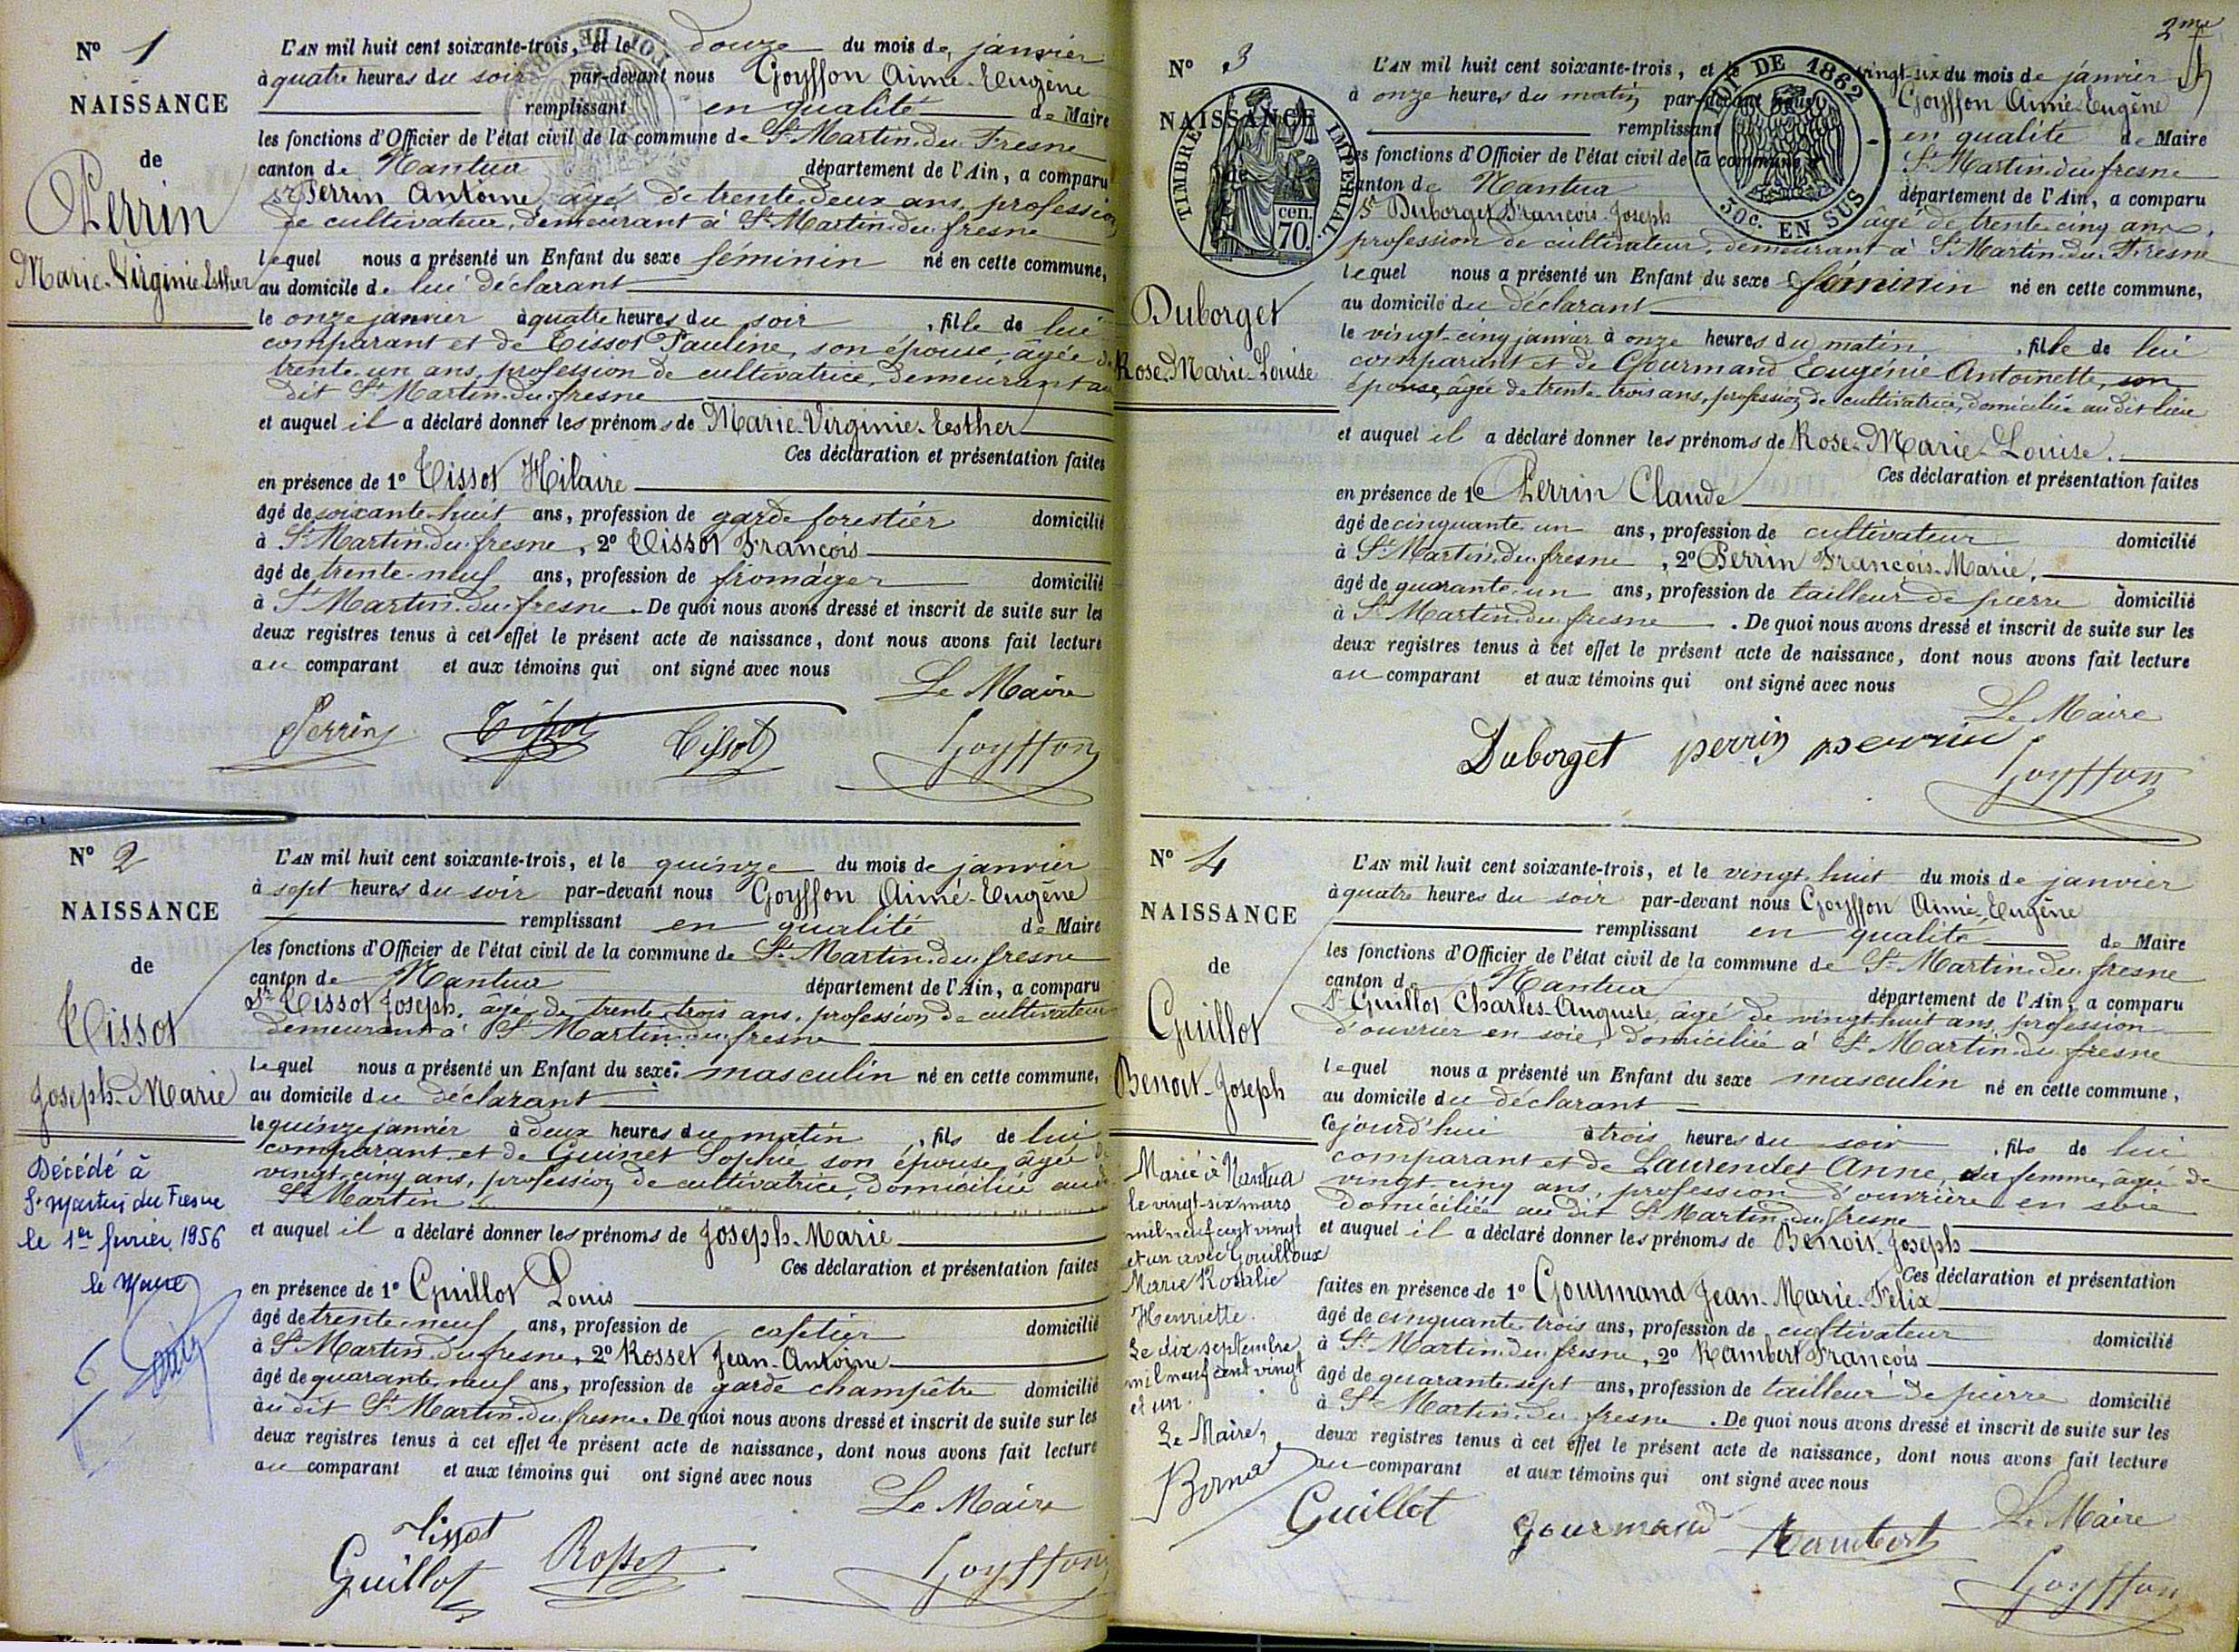 N° 1
NAISSANCE
de
Perrin
Marie-Virginie-Esther
L'AN mil huit cent soixante-trois, et le douze du mois de janvier
à quatre heures du soir par-devant nous Goyffon Aimé-Eugène
remplissant en qualité de Maire
les fonctions d'Officier de l'état civil de la commune de St Martin-du-Fresne
canton de Nantua département de l'Ain, a comparu
Sr Perrin Antoine, âgé de trente-deux ans, profession
de cultivateur, demeurant à St Martin-du-fresne
lequel nous a présenté un Enfant du sexe féminin né en cette commune,
au domicile de lui déclarant
le onze janvier à quatre heures du soir, fille de lui
comparant et de Tissot Pauline, son épouse, âgée de
trente-un ans, profession de cultivatrice, demeurant au
dit St Martin-du-fresne
et auquel il a déclaré donner les prénoms de Marie-Virginie-Esther
Ces déclaration et présentation faites
en présence de 1° Tissot Hilaire
âgé de soixante-huit ans, profession de garde forestier domicilié
à St Martin-du-fresne, 2° Tissot François
âgé de trente-neuf ans, profession de fromager domicilié
à St Martin-du-fresne. De quoi nous avons dressé et inscrit de suite sur les
deux registres tenus à cet effet le présent acte de naissance, dont nous avons fait lecture
au comparant et aux témoins qui ont signé avec nous
Le Maire
Perrin Tissot Tissot Goyffon
N° 2
NAISSANCE
de
Tissot
Joseph-Marie
Décédé à
St Martin du Fresne
le 1er février 1956
le Maire
L'AN mil huit cent soixante-trois, et le quinze du mois de janvier
à sept heures du soir par-devant nous Goyffon Aimé-Eugène
remplissant en qualité de Maire
les fonctions d'Officier de l'état civil de la commune de St Martin-du-fresne
canton de Nantua département de l'Ain, a comparu
Sr Tissot Joseph, âgé de trente-trois ans, profession de cultivateur
demeurant à St Martin-du-fresne
lequel nous a présenté un Enfant du sexe masculin né en cette commune,
au domicile du déclarant
le quinze janvier à deux heures du matin, fils de lui
comparant et de Guinet Sophie son épouse, âgée de
vingt-cinq ans, profession de cultivatrice, domiciliée au dit
St Martin
et auquel il a déclaré donner les prénoms de Joseph-Marie
Ces déclaration et présentation faites
en présence de 1° Guillot Louis
âgé de trente-neuf ans, profession de cafetier domicilié
à St Martin-du-fresne, 2° Rosset Jean-Antoine
âgé de quarante-neuf ans, profession de garde champêtre domicilié
au dit St Martin-du-fresne. De quoi nous avons dressé et inscrit de suite sur les
deux registres tenus à cet effet le présent acte de naissance, dont nous avons fait lecture
au comparant et aux témoins qui ont signé avec nous
Le Maire
Tissot
Guillot Rosset Goyffon
2me
N° 3
NAISSANCE
de
TIMBRE IMPÉRIAL
cen.
70.
LOI DE 1862
30c. EN SUS
Duborget
Rose-Marie-Louise
L'AN mil huit cent soixante-trois, et le vingt-six du mois de janvier
à onze heures du matin par-devant nous Goyffon Aimé-Eugène
remplissant en qualité de Maire
les fonctions d'Officier de l'état civil de la commune de St Martin-du-fresne
canton de Nantua département de l'Ain, a comparu
Sr Duborget François-Joseph âgé de trente-cinq ans,
profession de cultivateur, demeurant à St Martin-du-Fresne
lequel nous a présenté un Enfant du sexe féminin né en cette commune,
au domicile du déclarant
le vingt-cinq janvier à onze heures du matin, fille de lui
comparant et de Gourmand Eugénie Antoinette, son
épouse, âgée de trente-trois ans, profession de cultivatrice, domiciliée au dit lieu
et auquel il a déclaré donner les prénoms de Rose-Marie-Louise.
Ces déclaration et présentation faites
en présence de 1° Perrin Claude
âgé de cinquante-un ans, profession de cultivateur domicilié
à St Martin-du-fresne, 2° Perrin François-Marie,
âgé de quarante-un ans, profession de tailleur de pierre domicilié
à St Martin-du-fresne. De quoi nous avons dressé et inscrit de suite sur les
deux registres tenus à cet effet le présent acte de naissance, dont nous avons fait lecture
au comparant et aux témoins qui ont signé avec nous
Le Maire
Duborget perrin perrin Goyffon
N° 4
NAISSANCE
de
Guillot
Benoit-Joseph
Marié à Nantua
le vingt-six mars
mil neuf cent vingt
et un avec Gouilloux
Marie Rosalie
Henriette.
Le dix septembre
mil neuf cent vingt
et un.
Le Maire,
L'AN mil huit cent soixante-trois, et le vingt-huit du mois de janvier
à quatre heures du soir par-devant nous Goyffon Aimé-Eugène
remplissant en qualité de Maire
les fonctions d'Officier de l'état civil de la commune de St Martin-du-fresne
canton de Nantua département de l'Ain, a comparu
Sr Guillot Charles-Auguste, âgé de vingt-huit ans, profession
d'ouvrier en soie, domiciliée à St Martin-du-fresne
lequel nous a présenté un Enfant du sexe masculin né en cette commune,
au domicile du déclarant
cejourd'hui à trois heures du soir, fils de lui
comparant et de Laurendet Anne, sa femme, âgée de
vingt-cinq ans, profession d'ouvrière en soie
domiciliée au dit St Martin-du-fresne
et auquel il a déclaré donner les prénoms de Benoit-Joseph
Ces déclaration et présentation
faites en présence de 1° Gourmand Jean-Marie-Félix
âgé de cinquante-trois ans, profession de cultivateur domicilié
à St Martin-du-fresne, 2° Rambert François
âgé de quarante-sept ans, profession de tailleur de pierre domicilié
à St Martin-du-fresne. De quoi nous avons dressé et inscrit de suite sur les
deux registres tenus à cet effet le présent acte de naissance, dont nous avons fait lecture
au comparant et aux témoins qui ont signé avec nous
Le Maire
Guillot Gourmand Rambert Goyffon